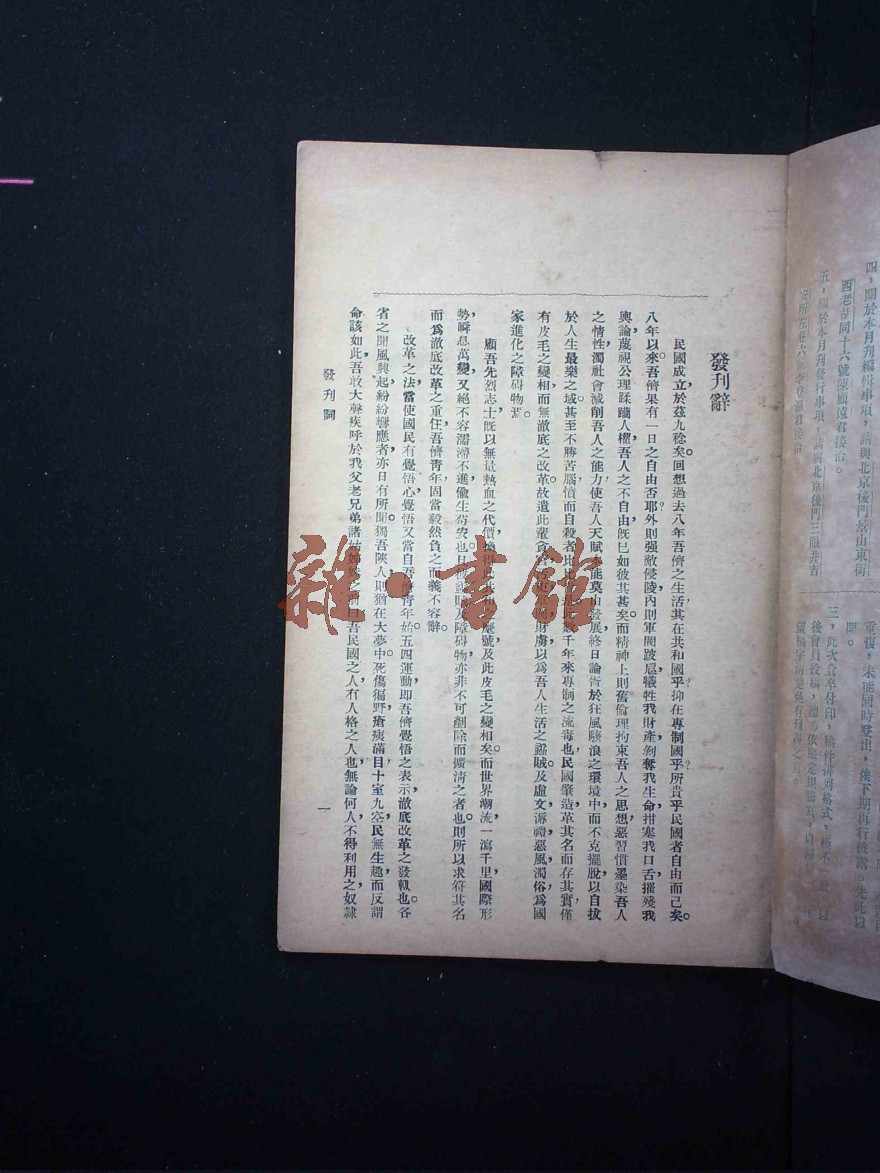 發刊辭
民國成立於茲九稔矣。回想過去八年吾儕之生活其在共和國乎？抑在專制國乎？所貴乎民國者自由而已矣。
八年以來吾儕果有一日之自由否耶？外則强敵侵陵內則軍閥跋扈犧牲我財產剝奪我生命拑塞我口舌摧殘我
輿論蔑視公理蹂躪人權吾人之不自由旣已如彼其甚矣。而精神上則舊倫理拘束吾人之思想惡習慣墨染吾人
之情性，濁社會減削吾人之能力使吾人天賦 能莫由發展終日論胥於狂風駭浪之環境中而不克擺脫以自拔
於人生最樂之域。甚至不勝苦腦憤而自殺者比 此 數千年來專制之流毒也，民國肇造革其名而存其實，僅
有皮毛之變相而無澈底之改革。故遺此 財虜以爲吾人生活之蠹賊。及虛文 禮惡風濁俗爲國
家進化之障碍物焉。
顧吾先烈志士旣以無量熱血之代價 號及此皮毛之變相矣。而世界潮流一瀉千里國際形
勢瞬息萬變，又絕不容濡滯不進偸生苟安也。日 及障碍物亦非不可剷除而擴淸之者也。則所以求符其名
而爲澈底改革之重任吾儕靑年固當毅然負之而義不容辭。
改革之法當使國民有覺悟心覺悟又當自吾儕靑年始五四運動卽吾儕覺悟之表示，澈底改革之發軔也。各
省之聞風興起紛紛響應者亦日有所聞。獨吾陝人則猶在大夢中死傷徧野瘡痍滿目十室九空民無生趣而反謂
命該如此，吾敢大聲疾呼於我父老兄弟諸姑姊 之前曰吾民國之人有人格之人也，無論何人不得利用之奴隸
發刊詞
一
四，關於本月刋編輯事項，請與北京後門景山東街
西老胡同十六號陳顧遠君接洽。
五，關於本月刋發行事項，請與北京後門三眼井吉
安所左巷六 君接洽
重複，未能同時登出，俟下期再行披露。先此以
聞。
三，此次倉卒付印，稿件排列格式，極不一致，以
後會員投稿，